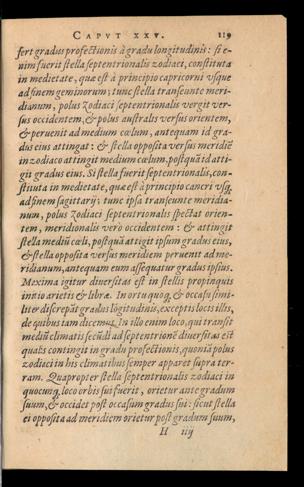 CAPVT XXV. 119
fert gradus profectionis à gradu longitudinis: si e-
nim fuerit stella septentrionalis zodiaci, constituta
in medietate, quæ est à principio capricorni vsque
ad finem geminorum; tunc stella transeunte meri-
dianum, polus Zodiaci septentrionalis vergit ver-
sus occidentem, & polus australis versus orientem,
& peruenit ad medium cœlum, antequam id gra-
dus eius attingat: & stella opposita versus meridiẽ
in zodiaco attingit medium cœlum, postquã id atti-
git gradus eius. Si stella fuerit septentrionalis, con-
stituta in medietate, quæ est à principio cancri vsq;
ad finem sagittarij; tunc ipsa transeunte meridia-
num, polus Zodiaci septentrionalis spectat orien-
tem, meridionalis verò occidentem: & attingit
stella mediũ cœli, postquã attigit ipsum gradus eius,
& stella opposita versus meridiem peruenit ad me-
ridianum, antequam eum assequatur gradus ipsius.
Maxima igitur diuersitas est in stellis propinquis
initio arietis & libræ. In ortu quoq, & occasu simi-
liter discrepãt gradus lõgitudinis, exceptis locis illis,
de quibus tam dicemus. In illo enim loco, qui transit
mediũ climatis secũdi ad septentrionẽ diuersitas est
qualis contingit in gradu profectionis, quoniã polus
zodiaci in his climatibus semper apparet supra ter-
ram. Quapropter stella septentrionalis zodiaci in
quocunq, loco orbis sui fuerit, orietur ante gradum
suum, & occidet post occasum gradus sui: sicut stella
ei opposita ad meridiem orietur post gradum suum,
H iiij